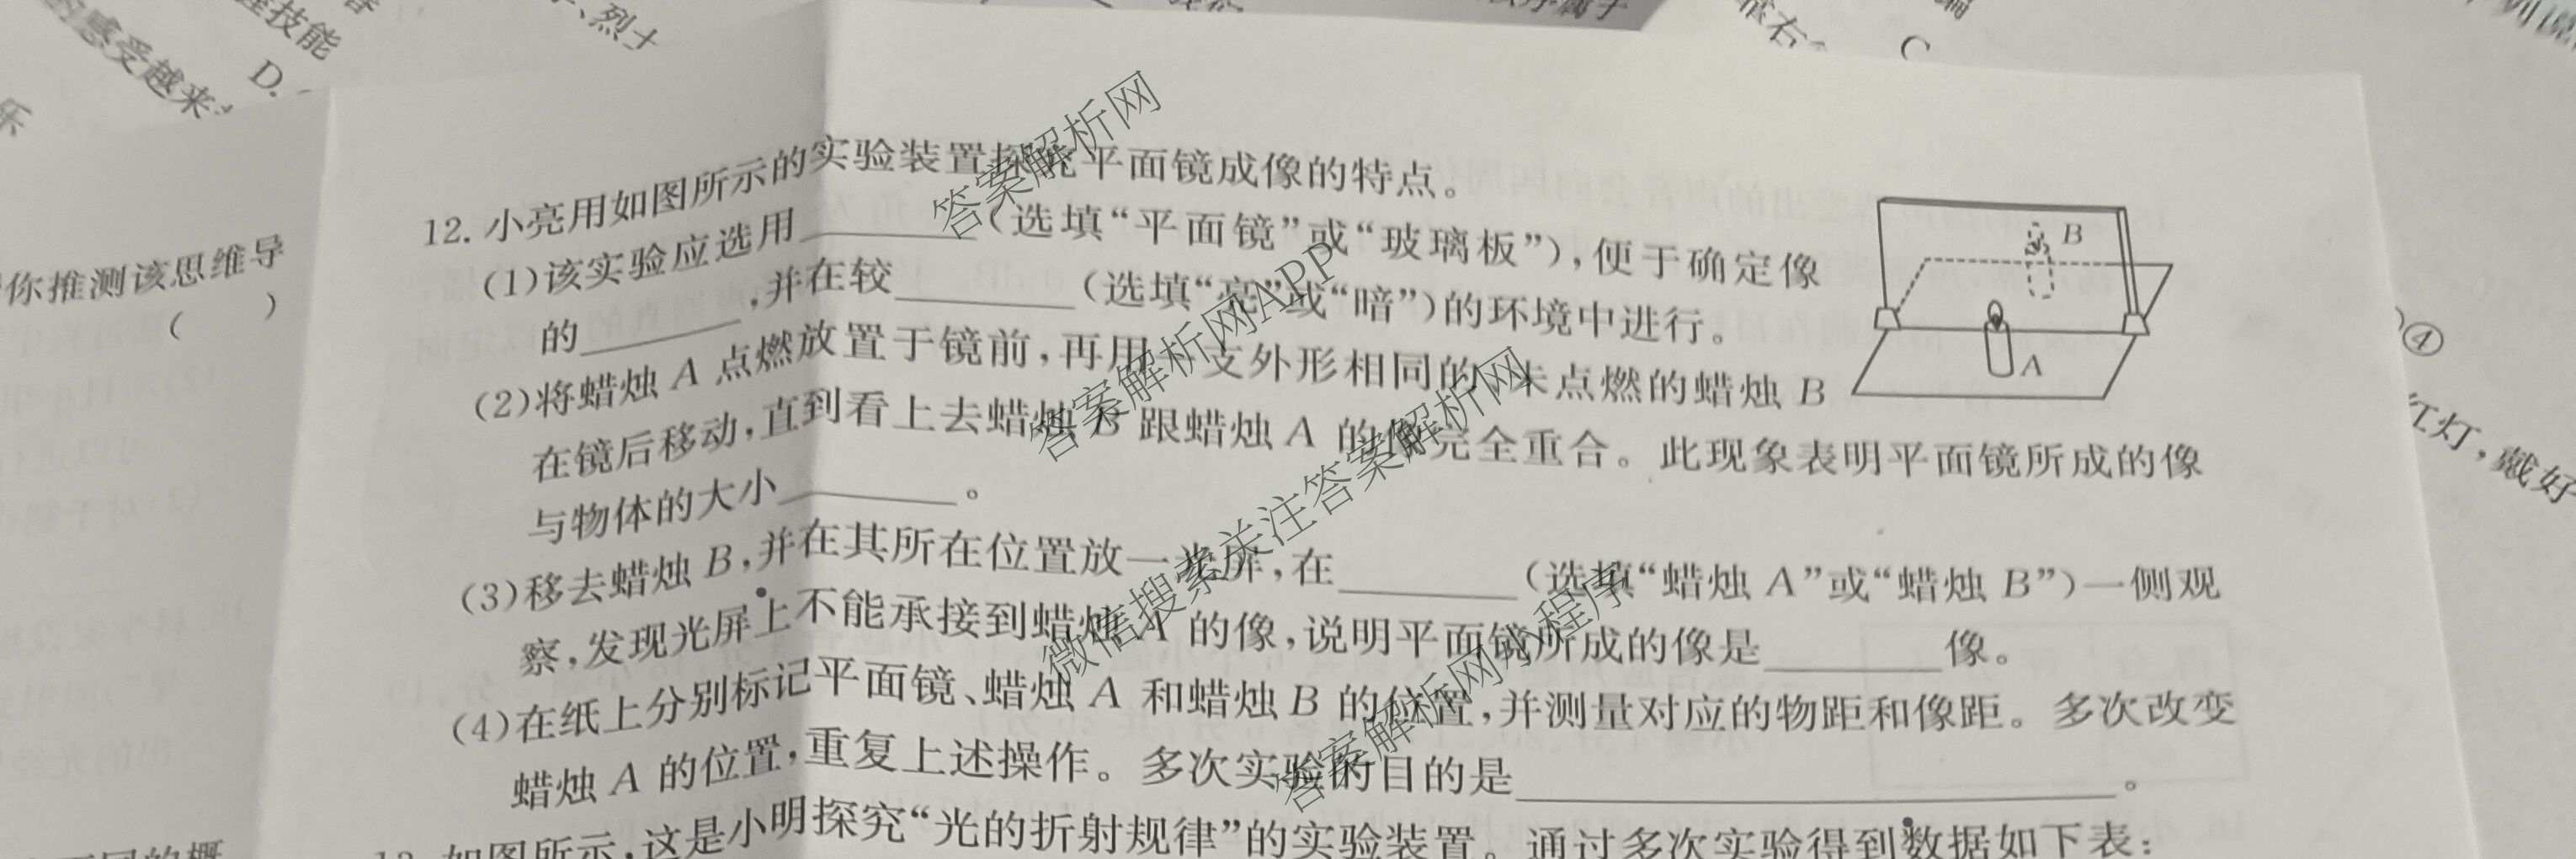 的感受越来
技能
D.
、烈士
C
乐
你推测该思维导
(  )
12.小亮用如图所示的实验装置探究平面镜成像的特点。
(1)该实验应选用________(选填“平面镜”或“玻璃板”),便于确定像
的________,并在较________(选填“亮”或“暗”)的环境中进行。
(2)将蜡烛 A 点燃放置于镜前,再用一支外形相同的、未点燃的蜡烛 B
在镜后移动,直到看上去蜡烛 B 跟蜡烛 A 的像完全重合。此现象表明平面镜所成的像
与物体的大小________。
(3)移去蜡烛 B,并在其所在位置放一光屏,在________(选填“蜡烛 A”或“蜡烛 B”)一侧观
察,发现光屏上不能承接到蜡烛 A 的像,说明平面镜所成的像是________像。
(4)在纸上分别标记平面镜、蜡烛 A 和蜡烛 B 的位置,并测量对应的物距和像距。多次改变
蜡烛 A 的位置,重复上述操作。多次实验的目的是________________。
如图所示,这是小明探究“光的折射规律”的实验装置。通过多次实验得到数据如下表:
B
A
④
红灯,戴好
答案解析网
答案解析网APP
微信搜索关注答案解析网
答案解析网小程序